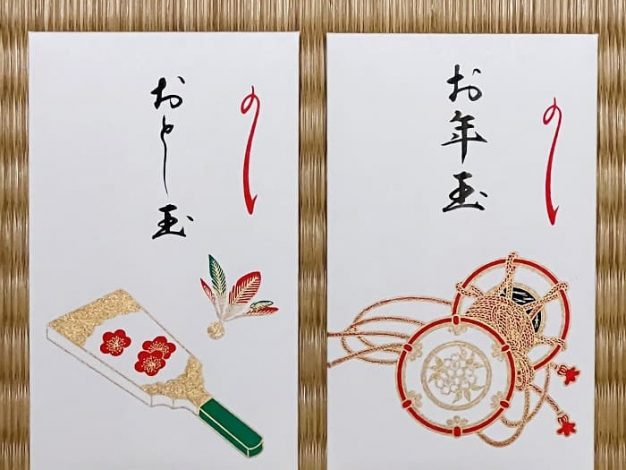 おとし玉
のし
お年玉
のし